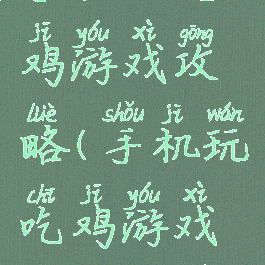 jī yóu xì gōng
鸡游戏攻
lüè shǒu jī wán
略(手机玩
chī jī yóu xì
吃鸡游戏